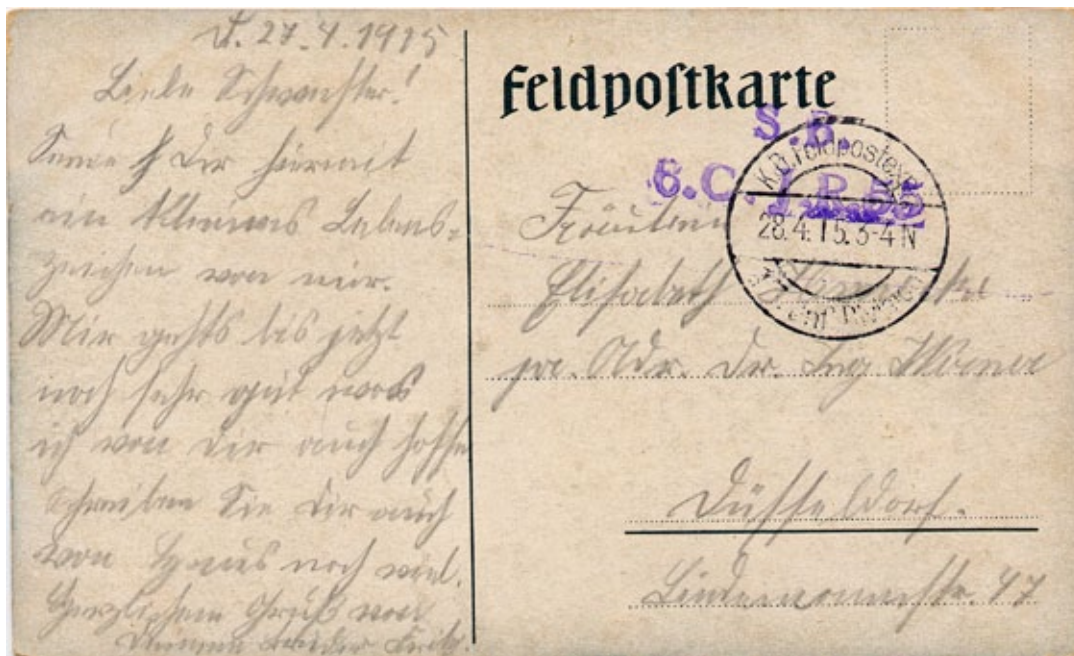 d. 27.4.1915
Liebe Schwester!
Sende Dir hiermit
ein kleines Lebens-
zeichen von mir.
Mir gehts bis jetzt
noch sehr gut was
ich von Dir auch hoffe
schreiben Sie Dir auch
von Haus noch viel.
Herzlichen Gruß von
Deinem Bruder Fritz.
Feldpostkarte
S. B.
6.C. J.R. 55
K.D. Feldpostexp.
28.4.15. 3-4 N
Inf. Division
Fräulein
Elisabeth
pr. Adr. Dr. Ing.
Düsseldorf.
Lindemannstr. 47